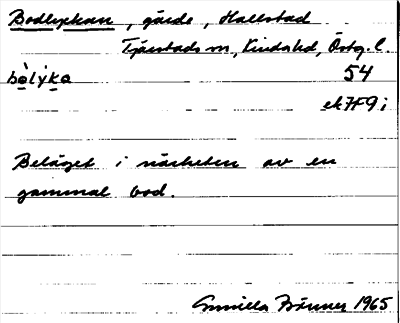 Bodlyckan, gärde, Hallstad
Tjärstads sn, Kinds hd, Östg. l.
bo̱lỳka
54
ek 7F9i
Beläget i närheten av en
gammal bod.
Gunilla Bränner 1965